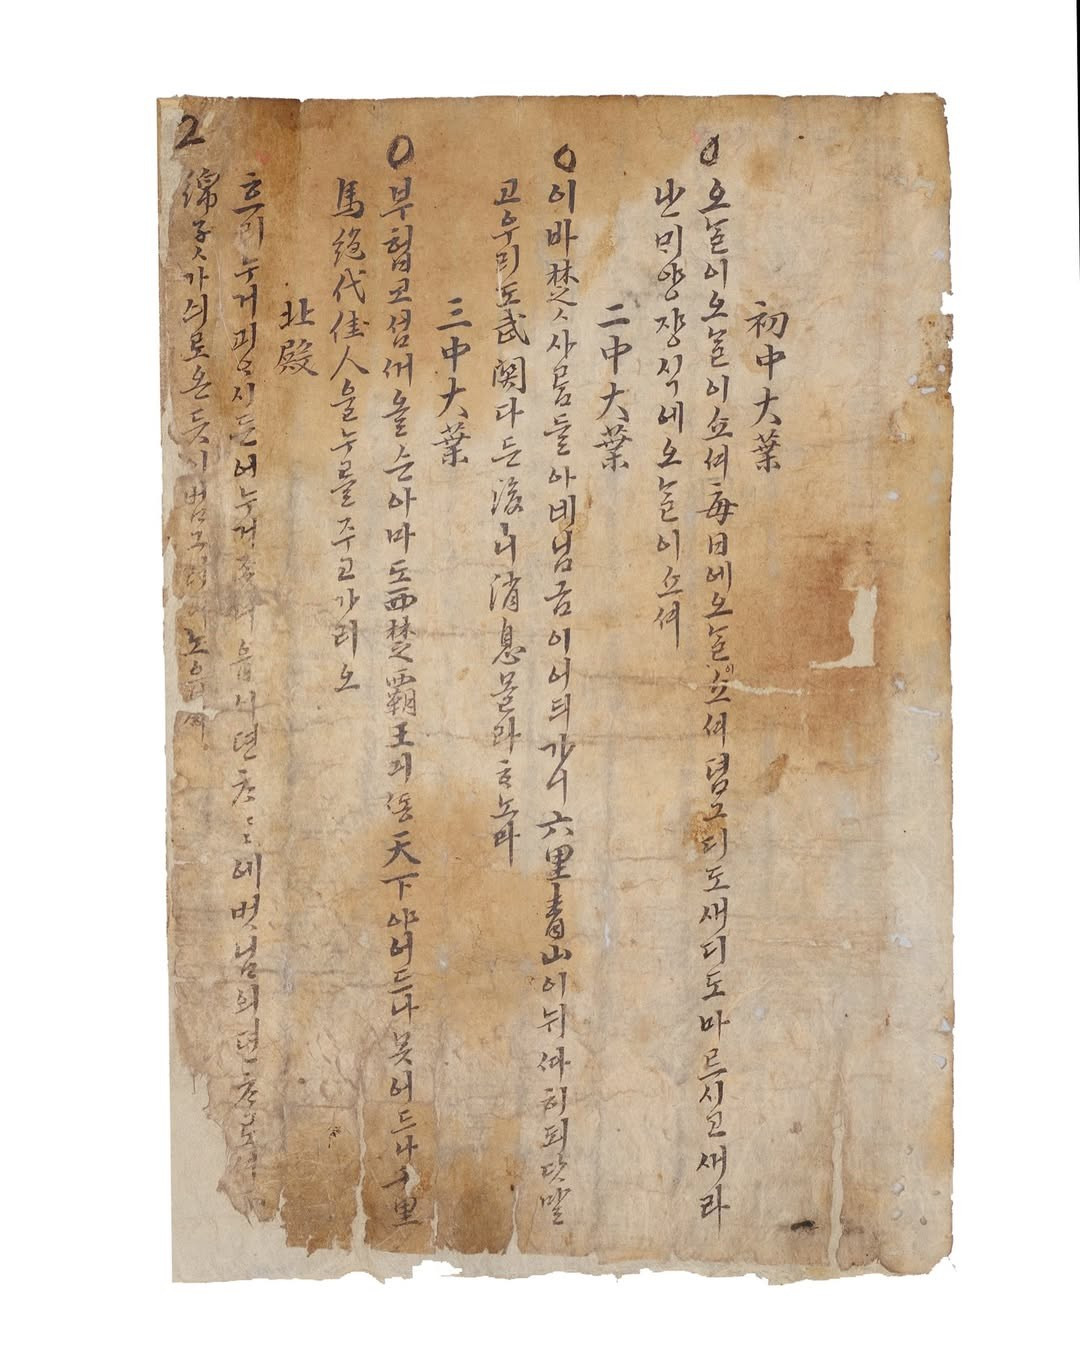 初中大葉
○오ᄂᆞᆯ이오ᄂᆞᆯ이쇼셔每日에오ᄂᆞᆯ이쇼셔뎜그디도새디도마르시고새라
난ᄆᆡ양쟝식에오ᄂᆞᆯ이쇼셔
二中大葉
○이바楚ㅅ사ᄅᆞᆷ들아녜님금이어듸가니六里青山이뉘ᄯᅡ히되닷말
고우리도武関다든後ㅣ니消息몰라ᄒᆞ노라
三中大葉
○부헙코섬ᄭᅥ올ᄉᆞᆫ아마도西楚覇王긔ᄯᅩᆼ天下야어드나못어드나千里
馬絶代佳人을누를주고가리오
北殿
흐리누거괴ᄋᆞ시든어누거좃니ᄋᆞᆸ시뎐ᄎᆞᄎᆞ에벗님의뎐ᄎᆞ로셔
2
綿子ㅅ가싀로온듯시범그려노ᄋᆞᆸ셰